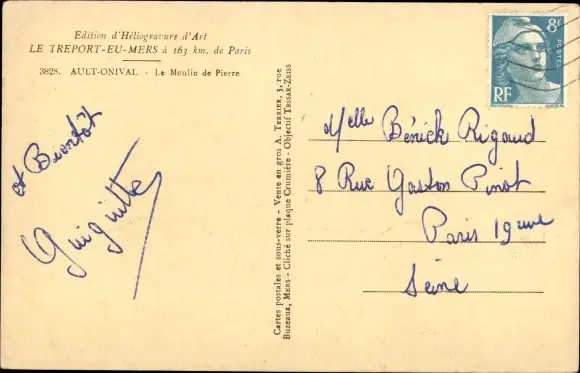 Edition d'Héliogravure d'Art
LE TREPORT-EU-MERS à 163 km. de Paris
3828. AULT-ONIVAL - Le Moulin de Pierre
et Bientôt
Guiguitte
Cartes postales et sous-verre - Vente en gros A. TERRIER, 3, rue
Buzeaux, MERS - Cliché sur plaque Crumière - Objectif TESSAR-ZEISS
8F
POSTES
RF
Melle Bénick Rigaud
8 Rue Gaston Pinot
Paris 19eme
Seine